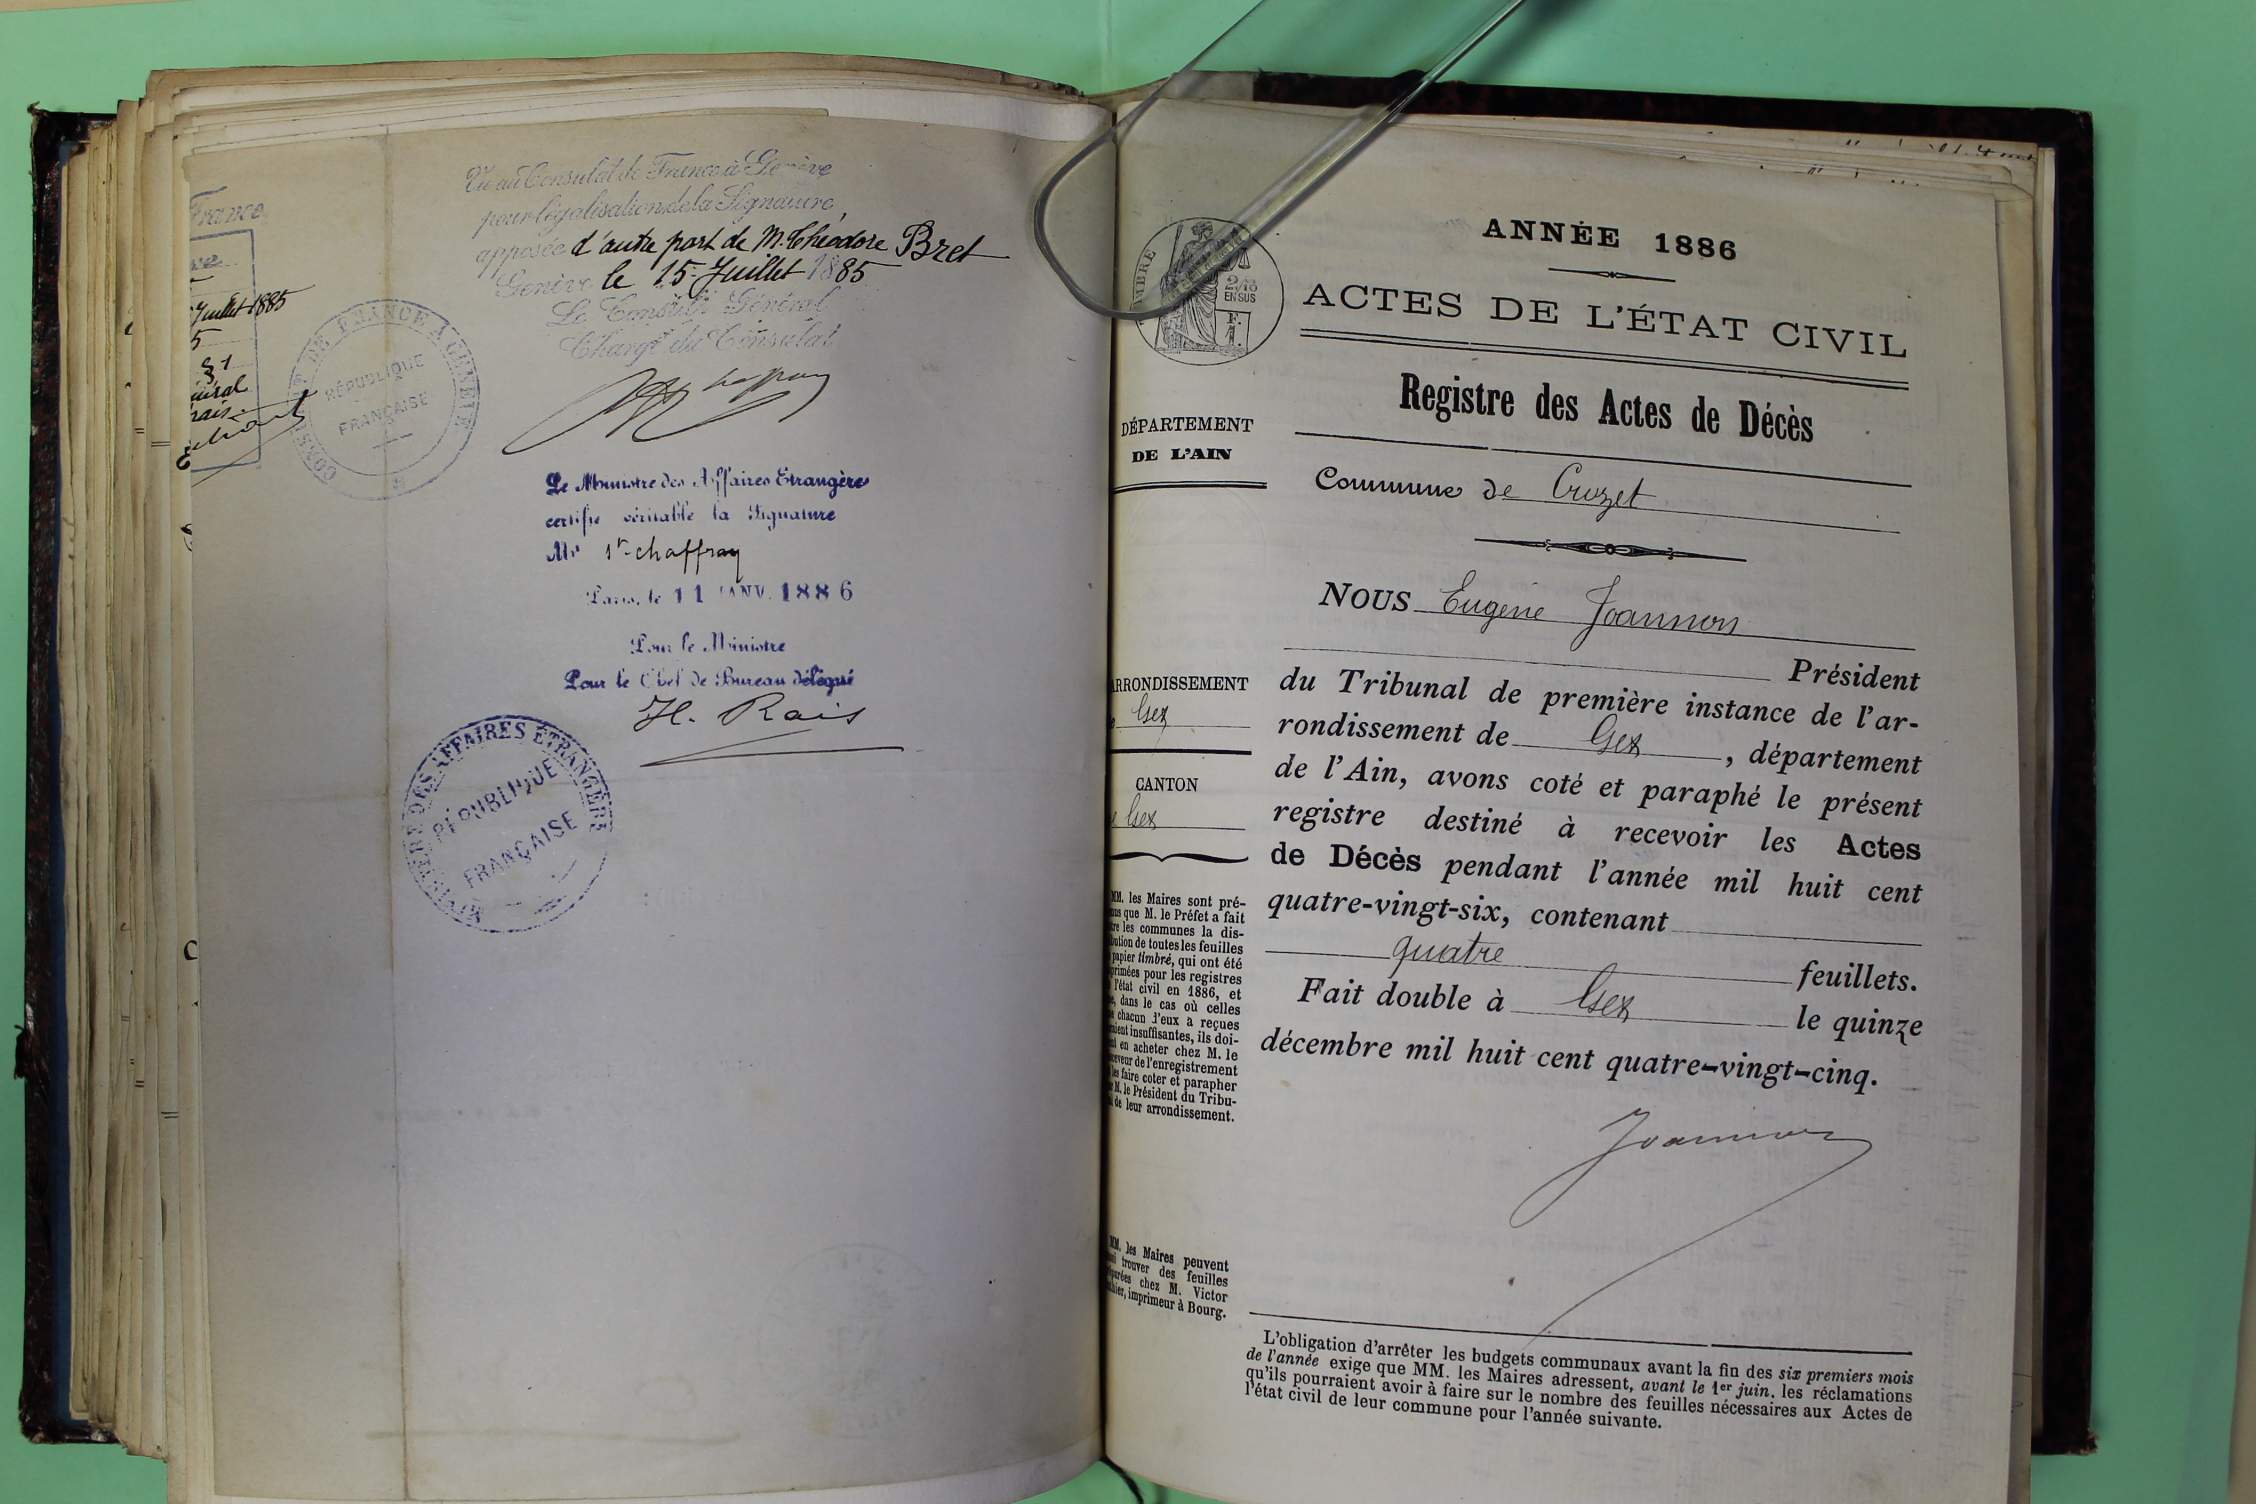 France
Juillet 1885
5
§1
Vu au Consulat de France à Genève
pour légalisation de la Signature
apposée d'autre part de M. Théodore Bret
Genève le 15 Juillet 1885
Le Consul Général
Chargé du Consulat
CONSULAT DE FRANCE A GENÈVE
RÉPUBLIQUE
FRANÇAISE
Le Ministre des Affaires Etrangères
certifie véritable la Signature
Mr St-chaffray
Paris, le 11 JANV. 1886
Pour le Ministre
Pour le Chef de Bureau délégué
H. Rais
MINISTÈRE DES AFFAIRES ÉTRANGÈRES
RÉPUBLIQUE
FRANÇAISE
ANNÉE 1886
ACTES DE L'ÉTAT CIVIL
Registre des Actes de Décès
Commune de Crozet
NOUS Eugène Joannon
Président
du Tribunal de première instance de l'ar-
rondissement de Gex, département
de l'Ain, avons coté et paraphé le présent
registre destiné à recevoir les Actes
de Décès pendant l'année mil huit cent
quatre-vingt-six, contenant
quatre feuillets.
Fait double à Gex le quinze
décembre mil huit cent quatre-vingt-cinq.
Joannon
L'obligation d'arrêter les budgets communaux avant la fin des six premiers mois
de l'année exige que MM. les Maires adressent, avant le 1er juin. les réclamations
qu'ils pourraient avoir à faire sur le nombre des feuilles nécessaires aux Actes de
l'état civil de leur commune pour l'année suivante.
DÉPARTEMENT
DE L'AIN
ARRONDISSEMENT
Gex
CANTON
Gex
MM. les Maires sont pré-
nus que M. le Préfet a fait
tre les communes la dis-
bution de toutes les feuilles
papier timbré, qui ont été
primées pour les registres
l'état civil en 1886, et
e, dans le cas où celles
e chacun d'eux a reçues
raient insuffisantes, ils doi-
nt en acheter chez M. le
ceveur de l'enregistrement
les faire coter et parapher
r M. le Président du Tribu-
al de leur arrondissement.
MM. les Maires peuvent
ssi trouver des feuilles
parées chez M. Victor
thier, imprimeur à Bourg.